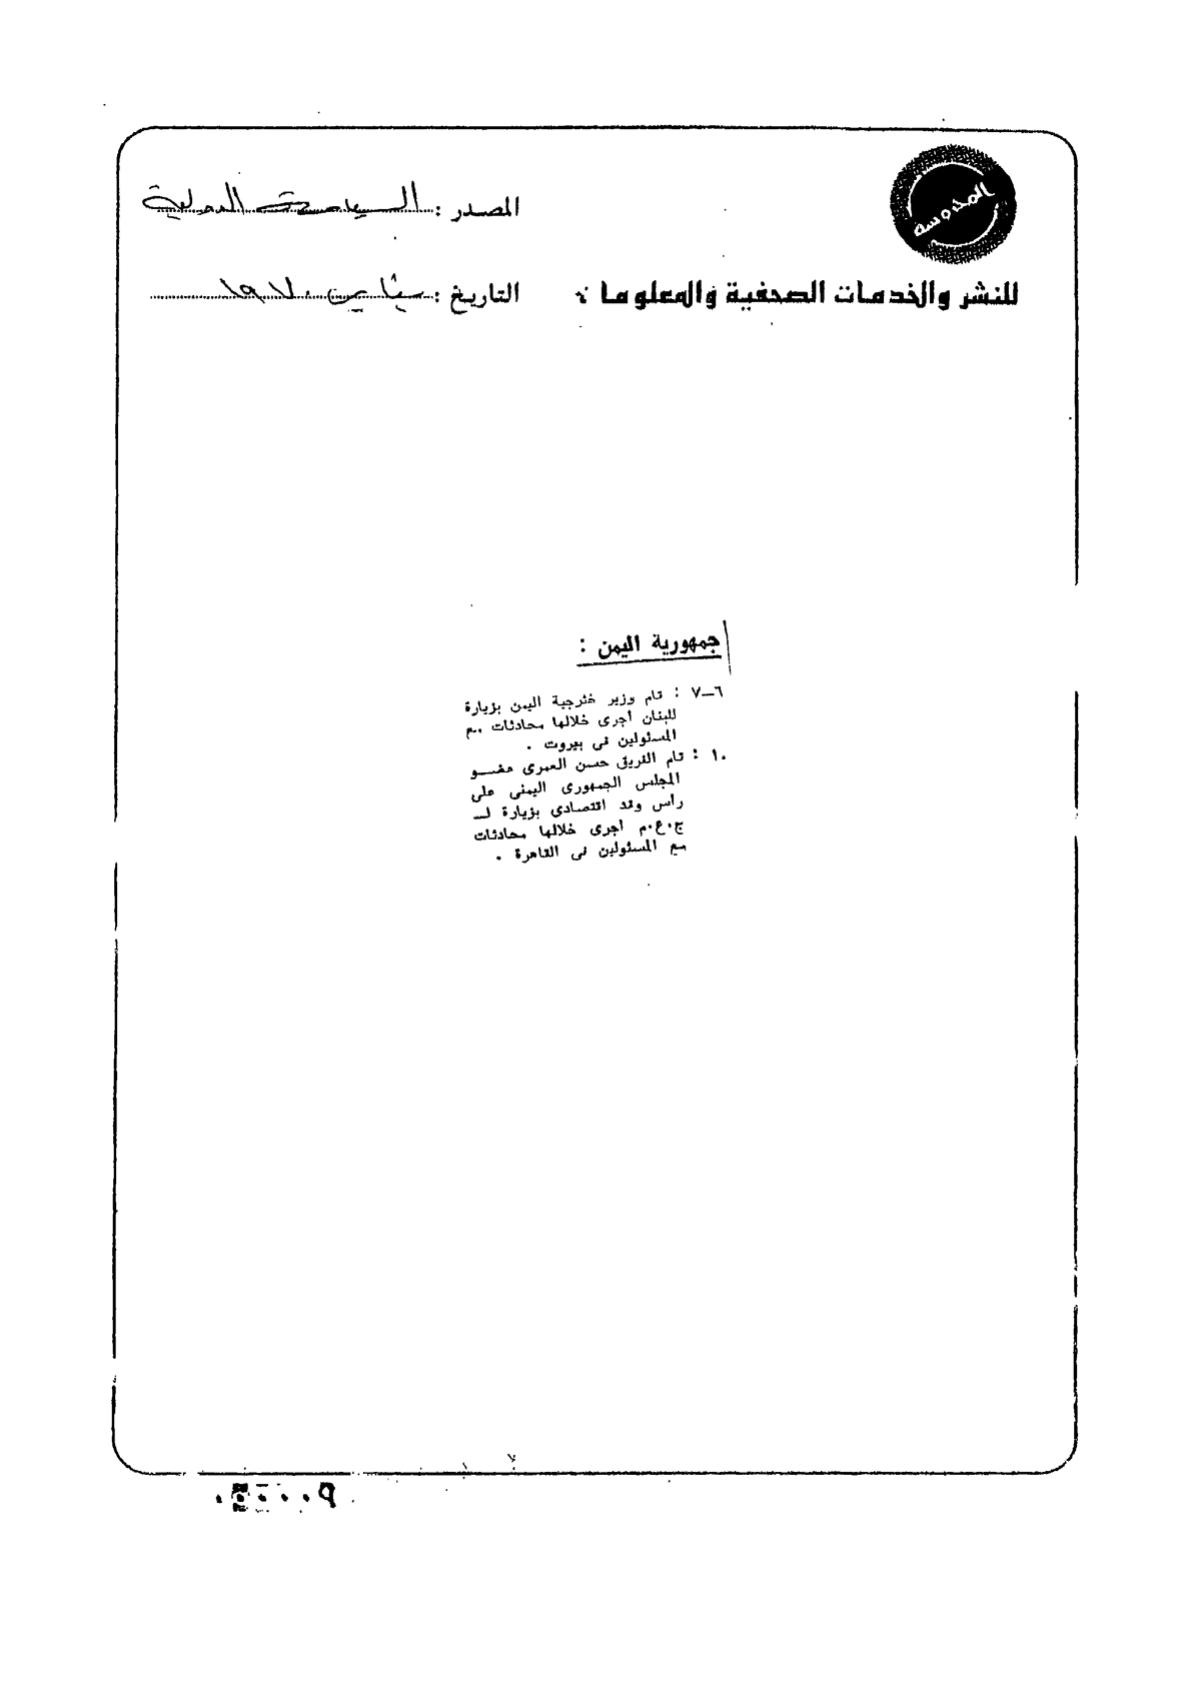 المحروسة
المصدر : السياسة الدولية
للنشر والخدمات الصحفية والمعلومات
التاريخ : يناير ١٩٧٠
جمهورية اليمن :
٦-٧ : قام وزير خارجية اليمن بزيارة
للبنان أجرى خلالها محادثات مع
المسئولين فى بيروت .
١٠ : قام الفريق حسن العمرى عضو
المجلس الجمهورى اليمنى على
رأس وفد اقتصادى بزيارة لـ
ج.ع.م أجرى خلالها محادثات
مع المسئولين فى القاهرة .